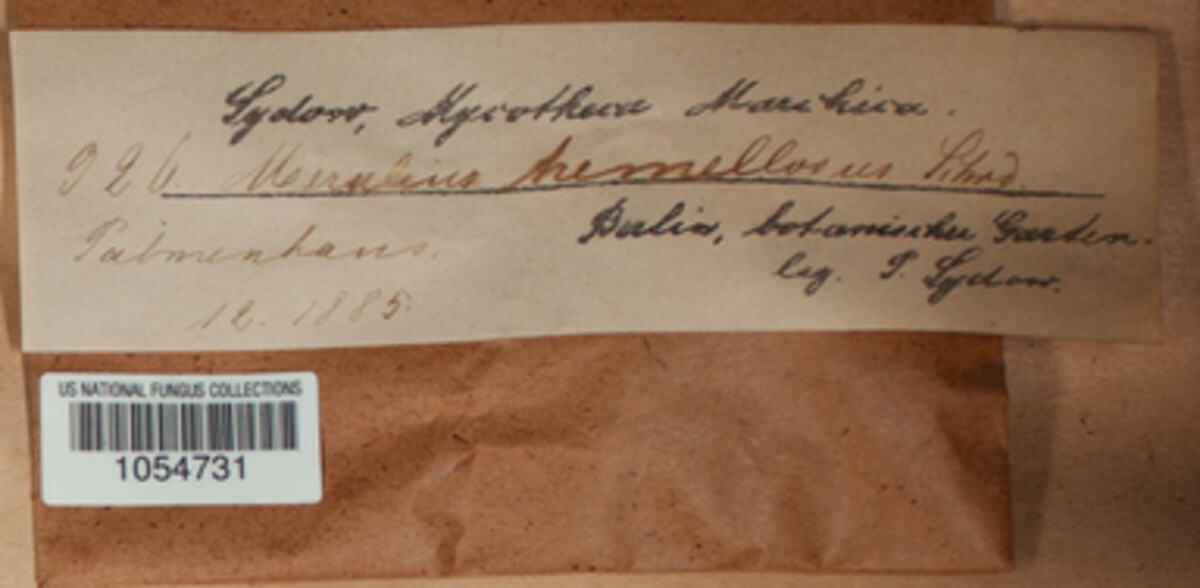 Sydow, Mycotheca Marchica.
926. Merulius tremellosus Schrd.
Palmenhaus.
Berlin, botanischer Garten.
12. 1885.
leg. P. Sydow.
US NATIONAL FUNGUS COLLECTIONS
1054731